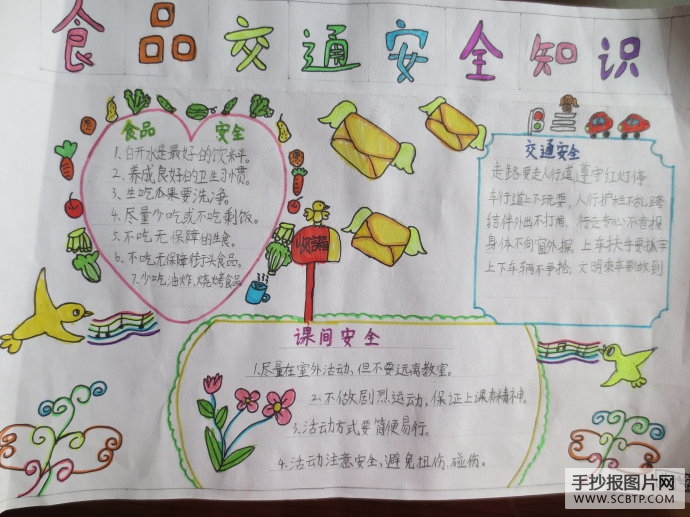 食品交通安全知识
食品 安全
1、白开水是最好的饮料。
2、养成良好的卫生习惯。
3、生吃瓜果要洗净。
4、尽量少吃或不吃剩饭。
5、不吃无保障的生食。
6、不吃无保障街头食品。
7、少吃油炸、烧烤食品
收信箱
交通安全
走路要走人行道遵守红灯停
车行道上不玩耍。人行护栏不乱跨
结伴外出不打闹，行走专心不看报
身体不向窗外探，上车扶手要抓牢
上下车辆不争抢，文明乘车要做到
课间安全
1.尽量在室外活动，但不要远离教室。
2.不做剧烈运动，保证上课有精神。
3.活动方式要简便易行。
4.活动注意安全，避免扭伤.碰伤。
手抄报图片网
WWW.SCBTP.COM